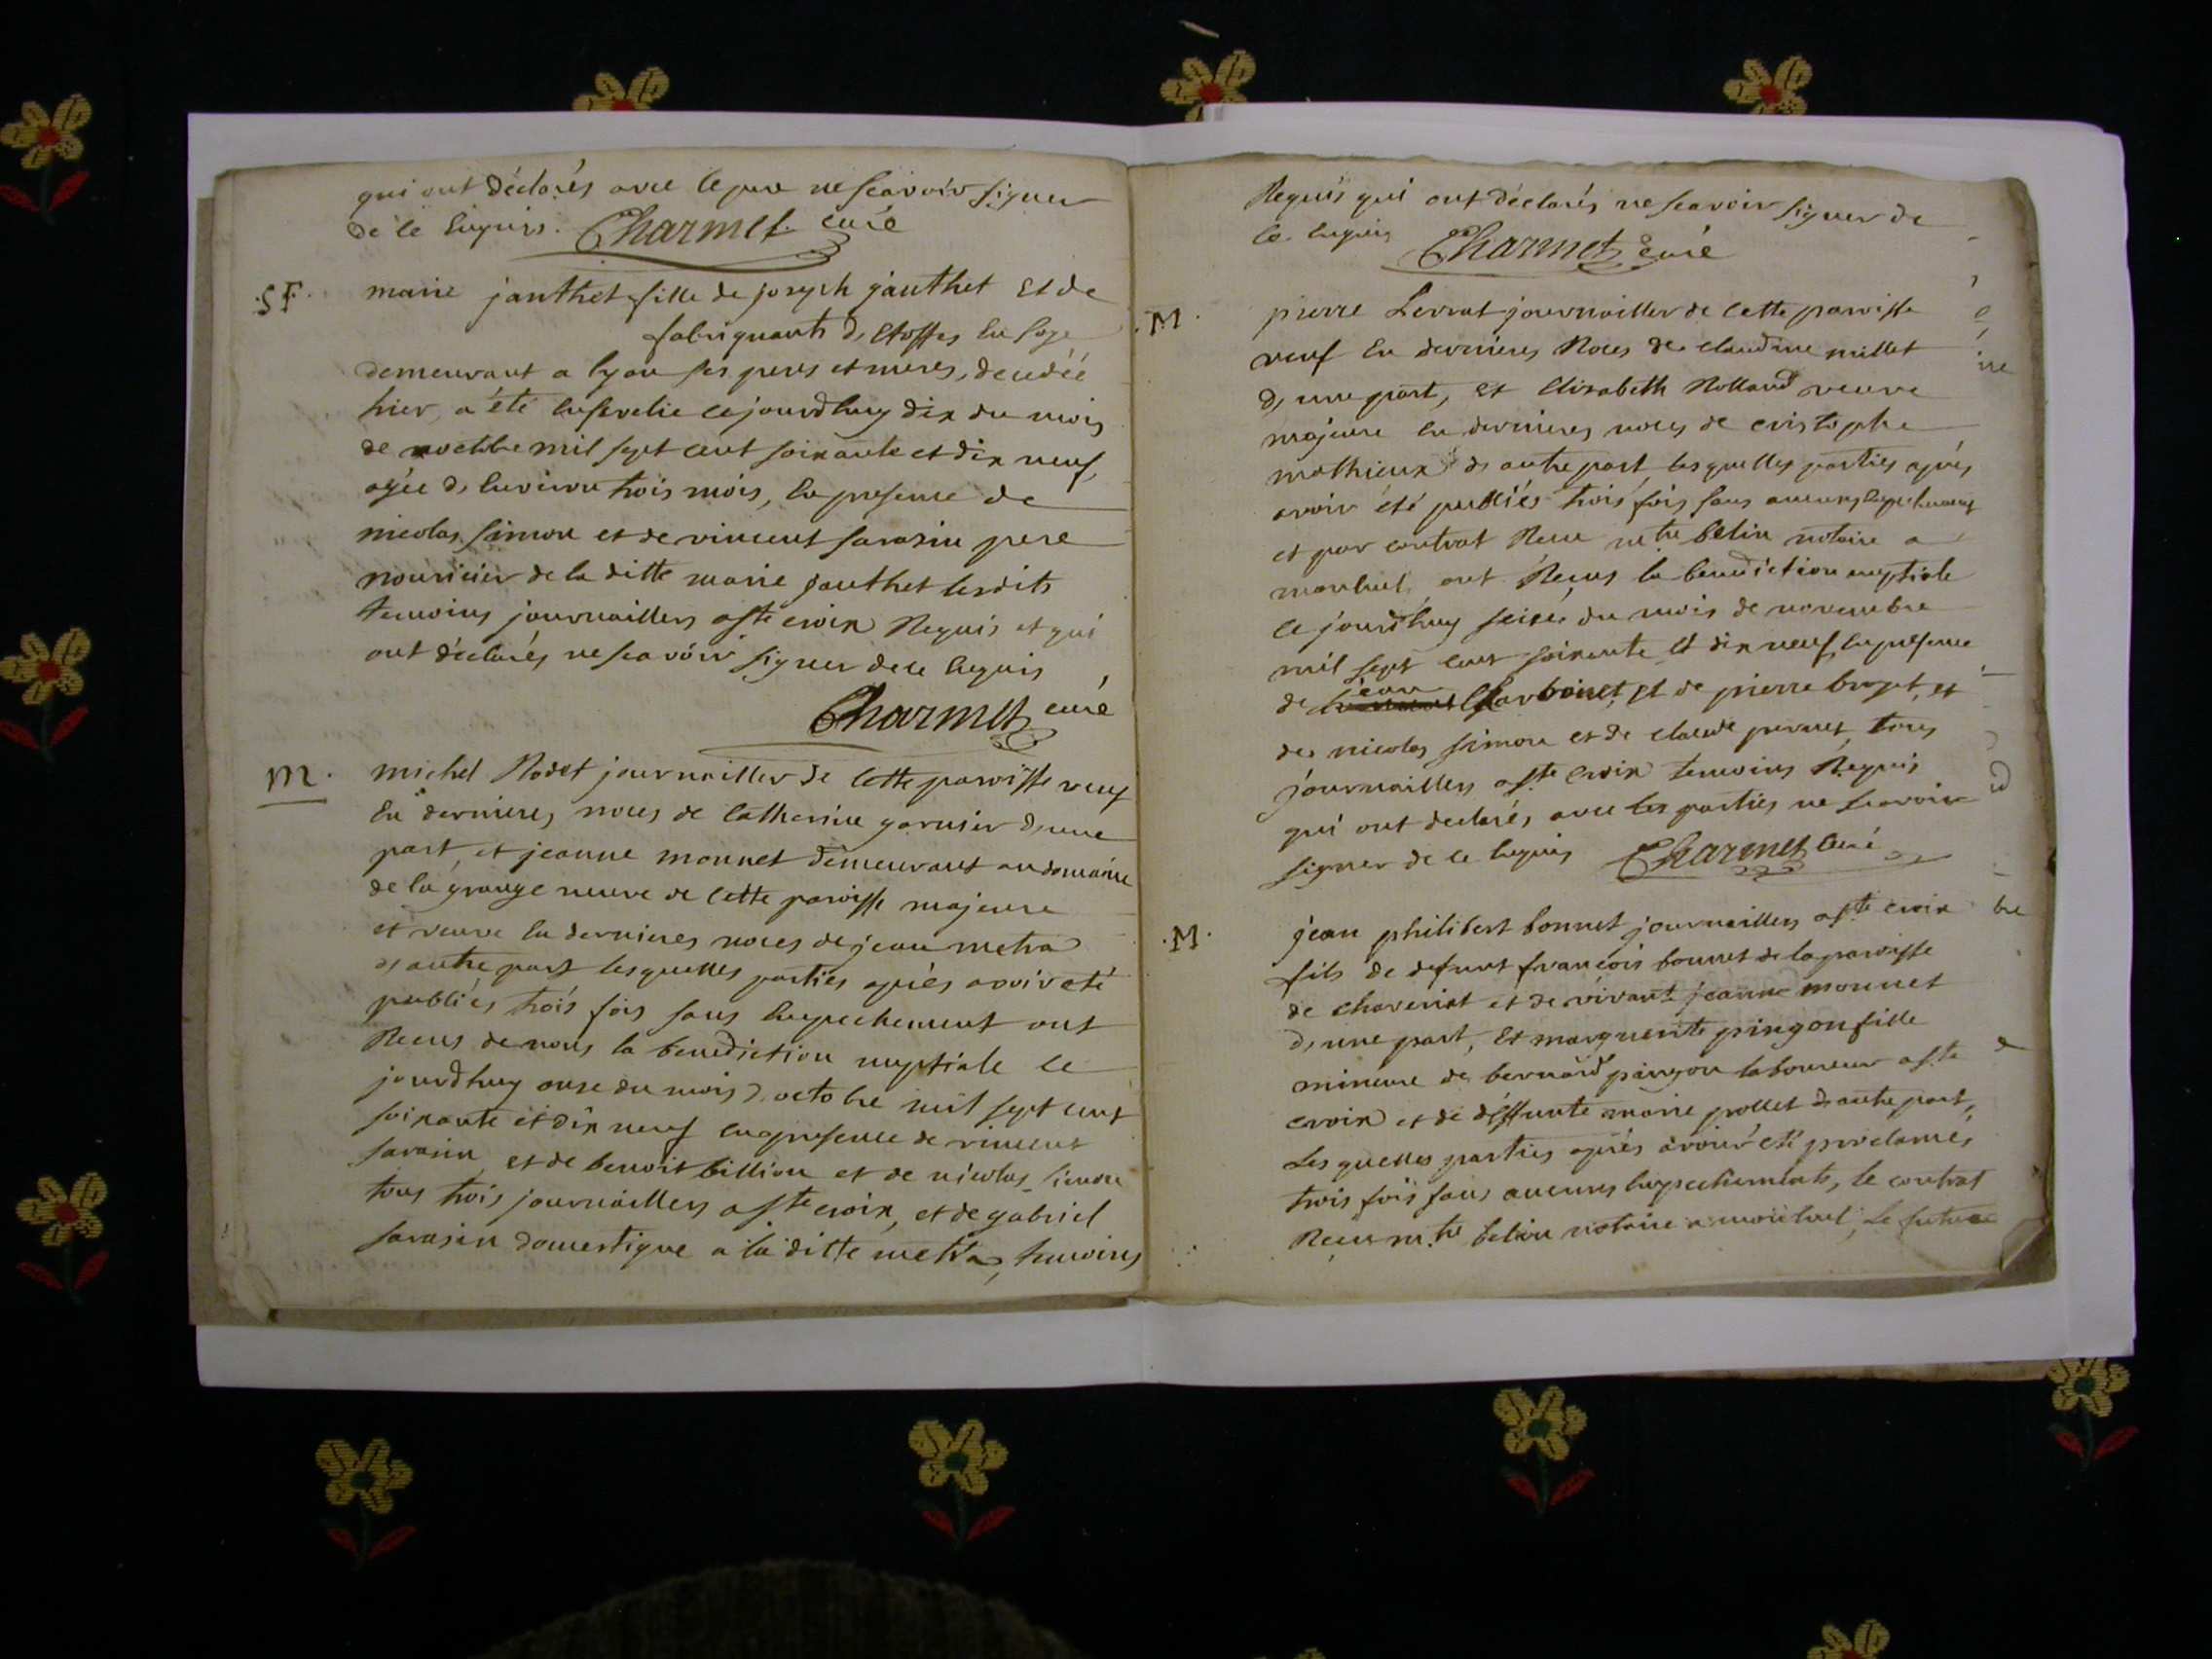 qui ont déclarés avec le pere ne scavoir signer
de ce enquis. Charmet curé
.S F. marie janthet fille de joseph janthet et de
fabriquants d, etoffes en soye
demeurant a lyon ses peres et meres, decedée
hier, a été ensevelie cejourdhuy dix du mois
de octbre mil sept cent soixante et dix neuf,
agée d, environ trois mois, en presence de
nicolas simon et de vincent sarasin pere
nouricier de la ditte marie janthet lesdits
temoins journailliers a ste croix Requis et qui
ont déclarés ne scavoir signer de ce enquis
Charmet curé
M. michel Rodet journaillier de cette paroisse veuf
en dernieres noces de catherine garnier d, une
part, et jeanne monnet demeurant au domaine
de la grange neuve de cette paroisse majeure
et veuve en dernieres noces de jean metra
d, autre part lesquelles parties après avoir eté
publiés trois fois sans empechement ont
Recus de nous la benediction nuptiale ce
jourdhuy onse du mois d, octobre mil sept cent
soixante et dix neuf en presence de vincent
sarasin, et de benoit billion et de nicolas simon
tous trois journailliers a ste croix, et de gabriel
sarasin domestique a la ditte metra, temoins
Requis qui ont déclarés ne scavoir signer de
ce enquis Charmet curé
.M. pierre Serrat journaillier de cette paroisse
veuf en dernieres Noces de claudine millet
d, une part, et elisabeth Rolland veuve
majeure en dernieres noces de cristophe
mathieux d, autre part lesquelles parties après
avoir été publiés trois fois sans aucuns empechements
et par contrat Recu me tre belin notaire a
monluel ont Reçus la benediction nuptiale
ce jourdhuy seise du mois de novembre
mil sept cent soixante et dix neuf en presence
de jean Charbonet, et de pierre broget, et
de nicolas simon et de claude perret, tous
journailliers a ste croix temoins Requis
qui ont declarés avec les parties ne scavoir
signer de ce enquis Charmet curé
.M. jean philibert bonnet journaillier a ste croix
fils de defunt françois bonnet de la paroisse
de chaveriat et de vivante jeanne monnet
d, une part, et marguerite pingon fille
mineure de bernard pingon laboureur a ste
croix et de déffunte marie pollet d, autre part,
Lesquelles parties après avoir eté proclamés
trois fois sans aucuns empechements, le contrat
Reçu m.tre belin notaire a monluel, Le future